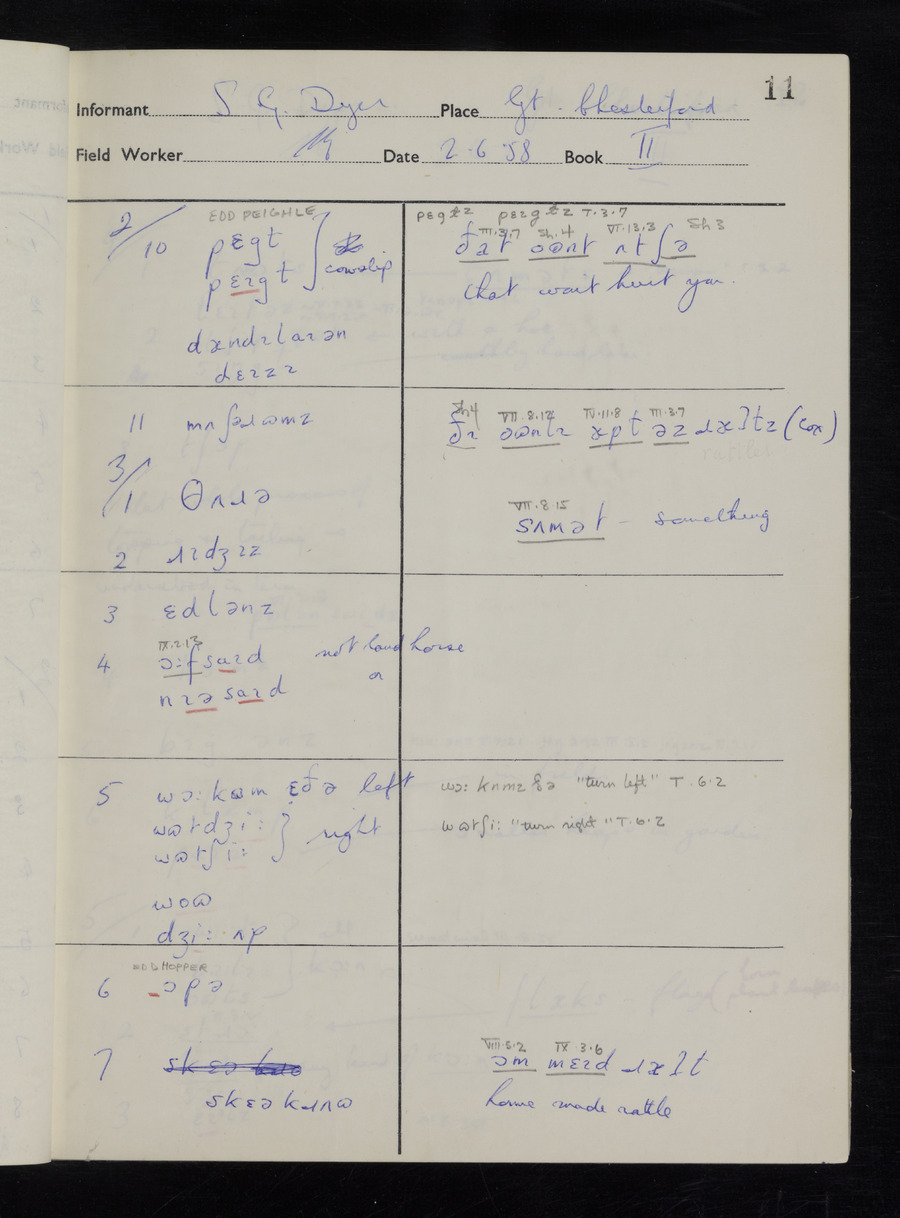 11
Informant S G. Dyer Place Gt. Chesterford
Field Worker Date 2.6.58 Book II
2/10 EDD PEIGHLE
pɛgt
pɛɪgt
cowslip
dændɪlaɪən
dɛɪzɪ
pɛgtz pɛɪgtz T.3.7
III.3.7 Sh.4 VI.13.3 Sh 3
ðat oənt ʌt ʃə
that wont hurt you.
11 mʌʃəɹʊmz
Sh4 VII.8.12 IV.11.8 III.3.7
(Cox)
3/1 θʌɹə
2 ɹɪdʒɪz
VII.8 15
sʌmət - something
3 ɛdlənz
4 IX.2.13
ɔ:fsaɪd not hand horse
or
nɪəsaɪd
5 wɔ: kʊm ɛðə left
wətdʒi: } right
wətʃi:
woʊ
dʒi: ʌp
wɔ: kʌmz ðə "turn left" T.6.2
wətʃi: "turn right" T.6.2
6 EDD HOPPER
ɔpə
7 skɛəkɹʌʊ
VIII.5.2 IX.3.6
ɔm mɛɪd ɹæʔt
home made rattle